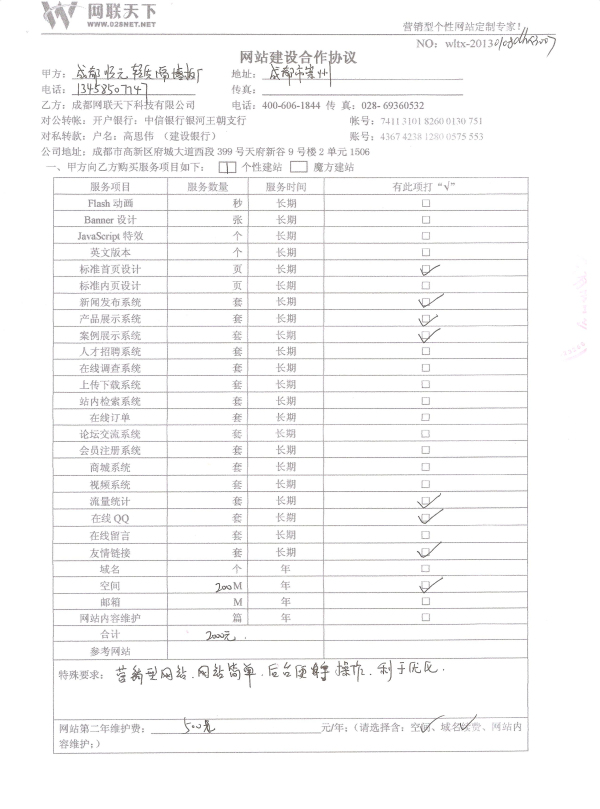 网联天下
WWW.028NET.NET
营销型个性网站定制专家!
NO: wltx-2013
网站建设合作协议
甲方: 成都恒元轻质隔墙板厂 地址: 成都市崇州
电话: 13458507147 传真:
乙方: 成都网联天下科技有限公司 电话: 400-606-1844 传 真: 028- 69360532
对公转帐: 开户银行: 中信银行银河王朝支行 帐号: 7411 3101 8260 0130 751
对私转款: 户名: 高思伟 (建设银行) 账号: 4367 4238 1280 0575 553
公司地址: 成都市高新区府城大道西段 399 号天府新谷 9 号楼 2 单元 1506
一、甲方向乙方购买服务项目如下: □ 个性建站 □ 魔方建站
服务项目 服务数量 服务时间 有此项打“√”
Flash 动画 秒 长期 □
Banner 设计 张 长期 □
JavaScript 特效 个 长期 □
英文版本 个 长期 □
标准首页设计 页 长期 ☑
标准内页设计 页 长期 □
新闻发布系统 套 长期 ☑
产品展示系统 套 长期 ☑
案例展示系统 套 长期 ☑
人才招聘系统 套 长期 □
在线调查系统 套 长期 □
上传下载系统 套 长期 □
站内检索系统 套 长期 □
在线订单 套 长期 □
论坛交流系统 套 长期 □
会员注册系统 套 长期 □
商城系统 套 长期 □
视频系统 套 长期 □
流量统计 套 长期 ☑
在线 QQ 套 长期 ☑
在线留言 套 长期 □
友情链接 套 长期 ☑
域名 个 年 □
空间 200M 年 ☑
邮箱 M 年 □
网站内容维护 篇 年 □
合计 2000元.
参考网站
特殊要求: 营销型网站、网站简单、后台 操作、利于优化.
网站第二年维护费: 500元 元/年; (请选择含: 空间、域名续费、网站内
容维护;)